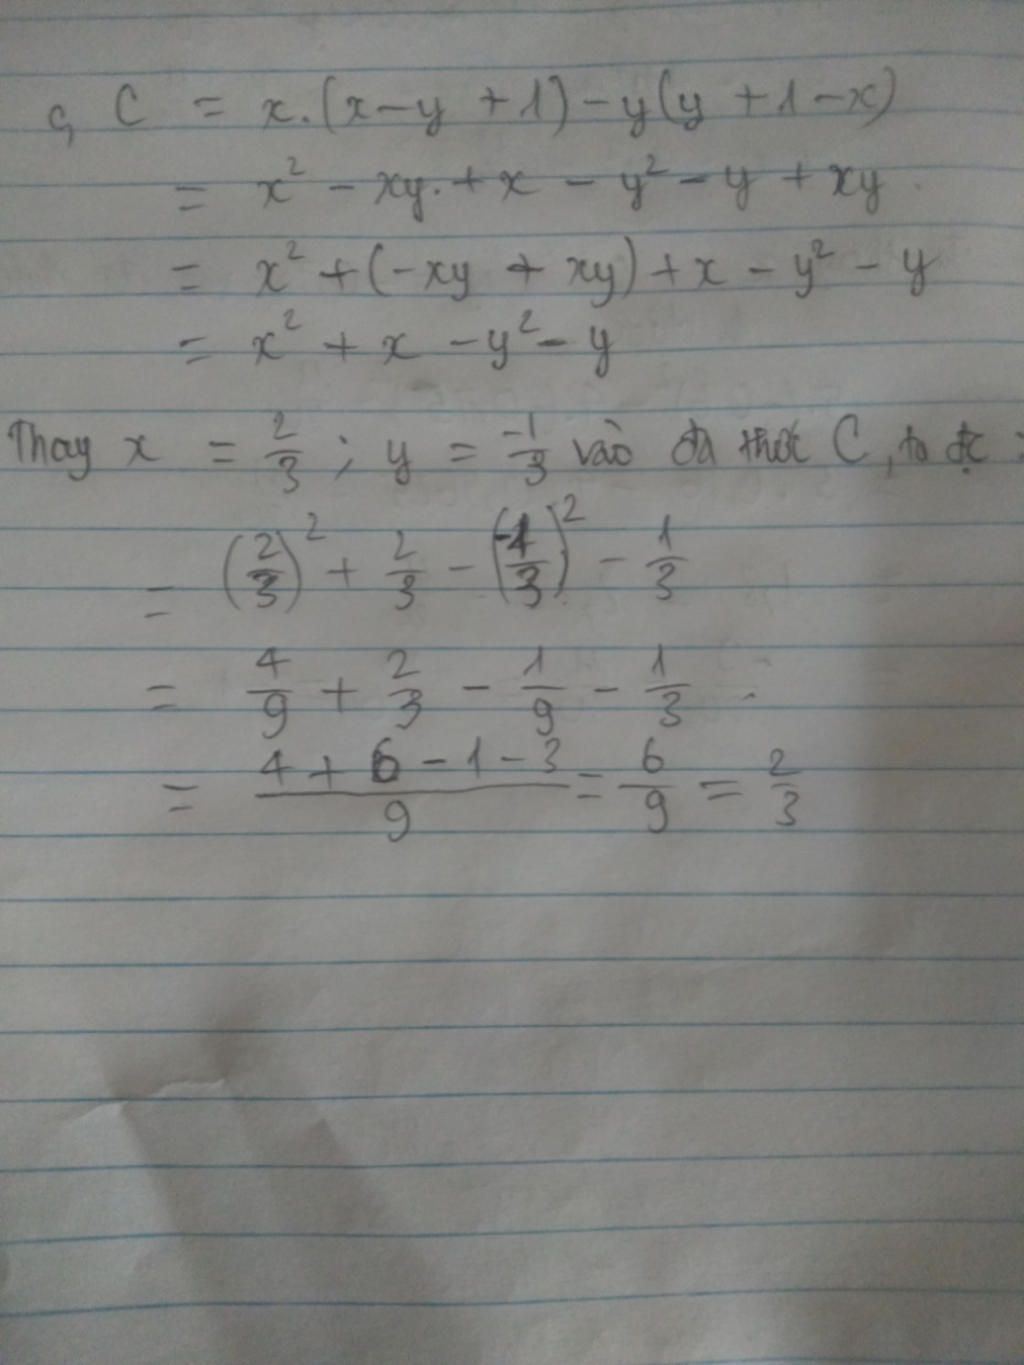 c, C = x.(x-y+1)-y(y+1-x)
= x² - xy. + x - y² - y + xy
= x² + (-xy + xy) + x - y² - y
= x² + x - y² - y
Thay x = 2/3 ; y = -1/3 vào đa thức C, ta đc :
= (2/3)² + 2/3 - (-1/3)² - 1/3
= 4/9 + 2/3 - 1/9 - 1/3
= (4 + 6 - 1 - 3)/9 = 6/9 = 2/3